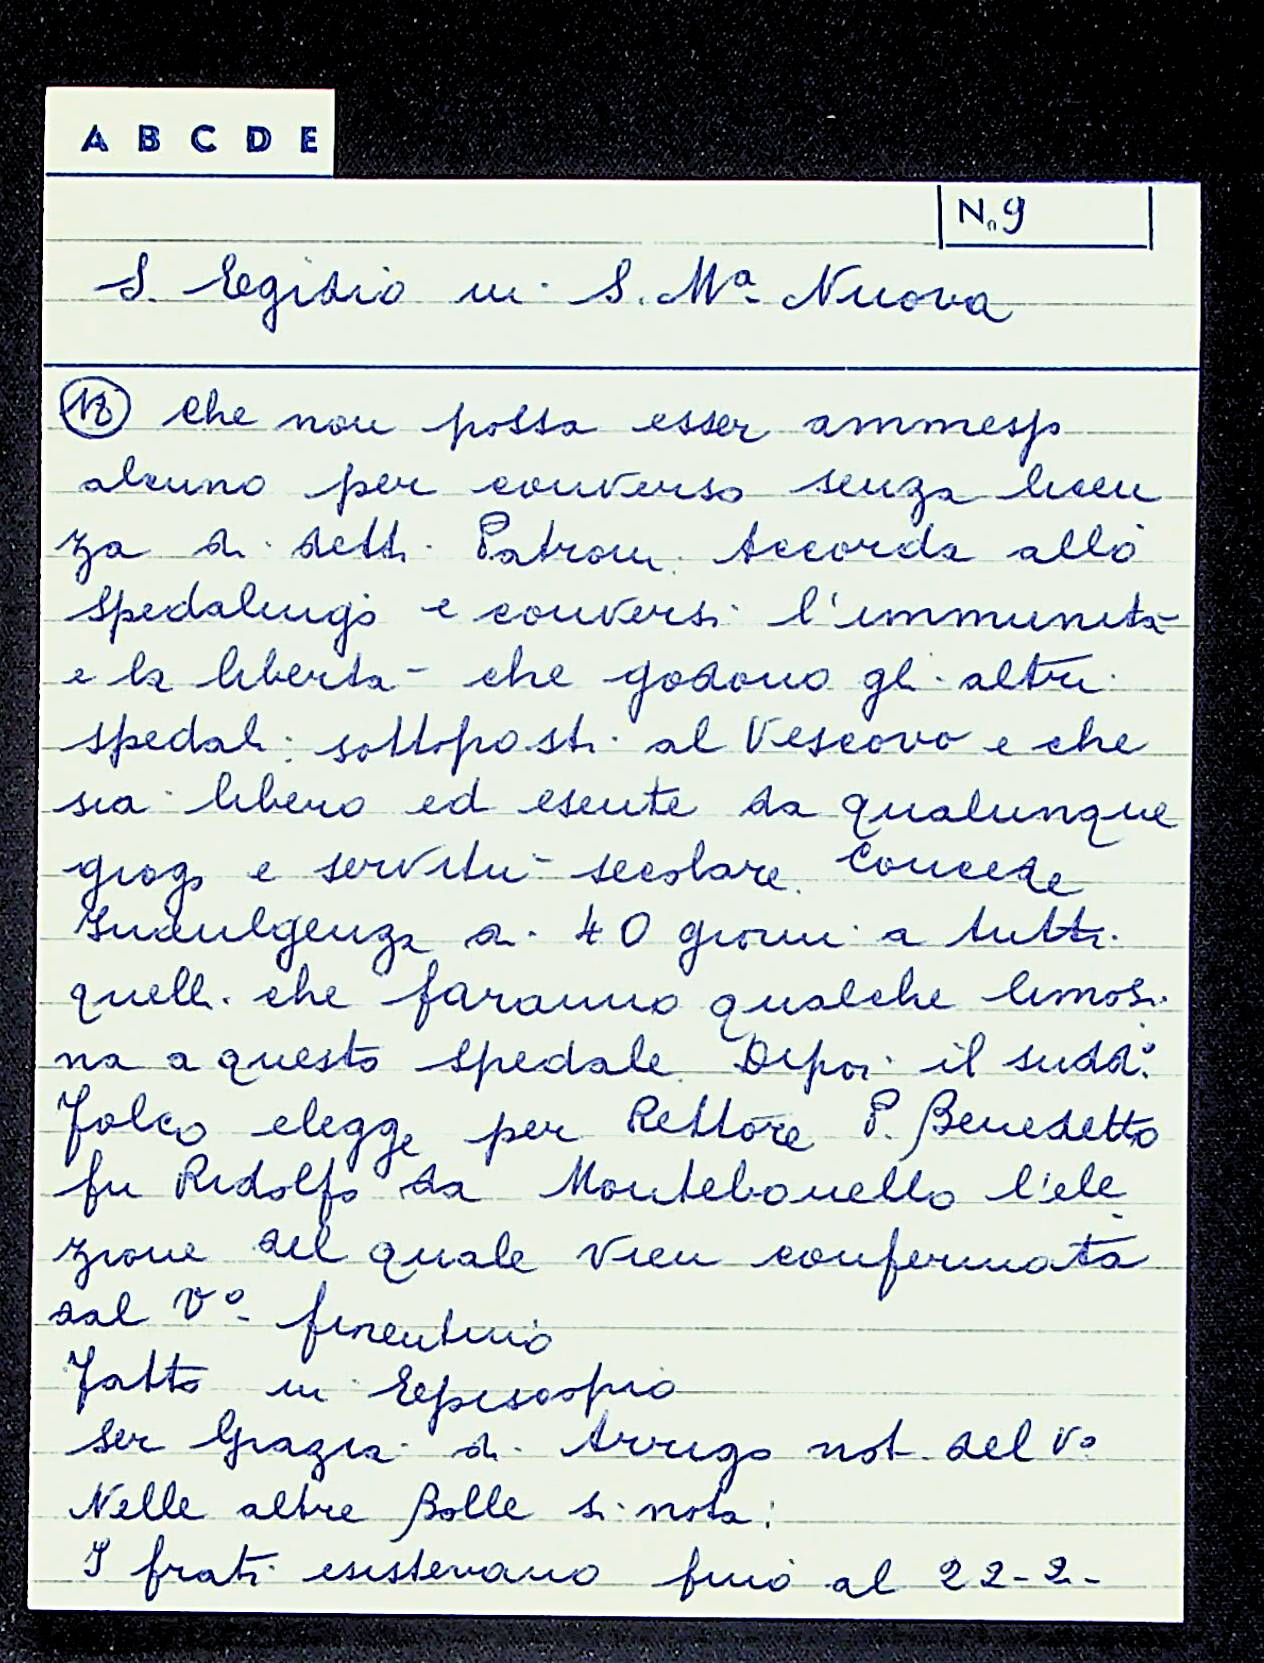 A B C D E
N. 9
S. Egidio in S. Mª Nuova
18 che non possa esser ammesso
alcuno per converso senza licen
za di detti Patroni. Accorda allo
Spedalingo e conversi l'immunità
e la libertà che godono gli altri
spedali sottoposti al Vescovo e che
sia libero ed esente da qualunque
giogo e servitù secolare. Concede
Indulgenza di 40 giorni a tutti
quelli che faranno qualche limosi
na a questo Spedale. Dipoi il sudd.º
Folco elegge per Rettore P. Benedetto
fu Ridolfo da Montebonello l'ele
zione del quale vien confermata
dal Vº fiorentino
Fatto in Episcopio
Ser Grazia di Arrigo not. del Vº
Nelle altre Bolle si nota:
I frati esistevano fino al 22-2-